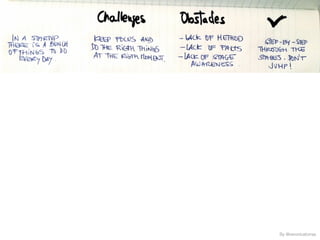 Challenges
Obstacles
IN A STARTUP
THERE IS A BUNCH
OF THINGS TO DO
EVERY DAY
KEEP FOCUS AND
DO THE RIGHT THINGS
AT THE RIGHT MOMENT.
- LACK OF METHOD
- LACK OF FACTS
- LACK OF STAGE
AWARENESS
STEP-BY-STEP
THROUGH THE
STAGES. DON'T
JUMP!